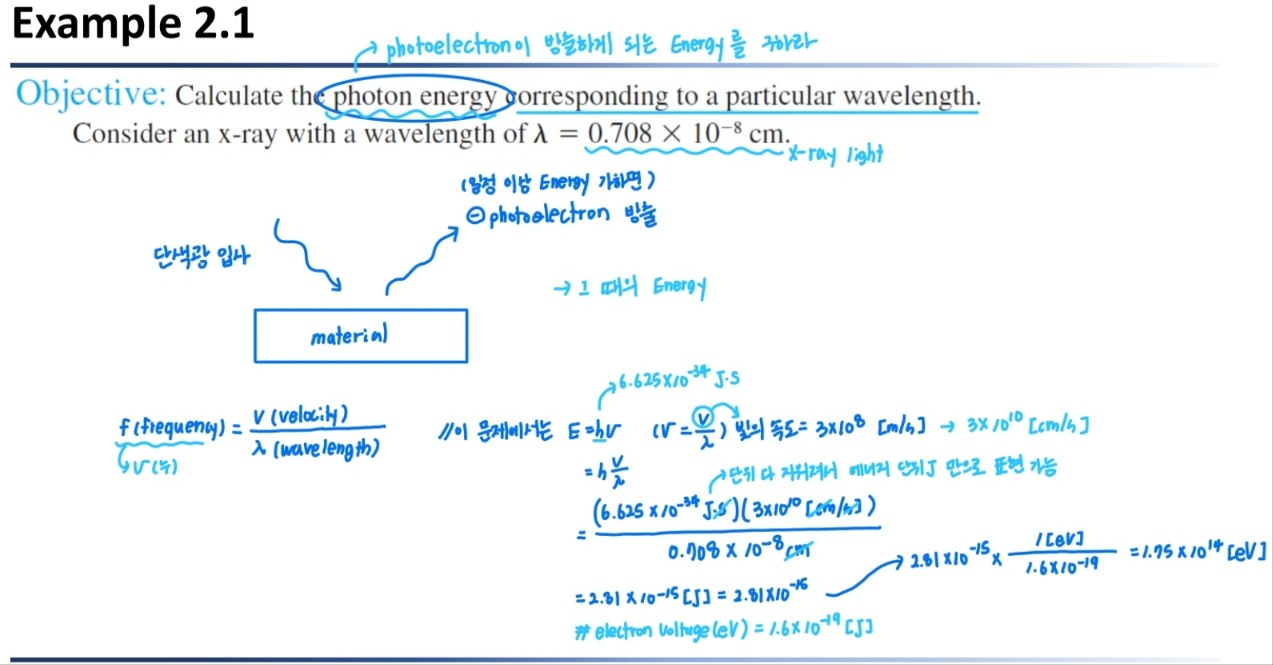 Example 2.1
photoelectron이 방출하게 되는 Energy를 구하라
Objective: Calculate the photon energy corresponding to a particular wavelength.
Consider an x-ray with a wavelength of λ = 0.708 × 10⁻⁸ cm.
x-ray light
(일정 이상 Energy 가하면)
⊖photoelectron 방출
단색광 입사
→ 그 때의 Energy
material
6.625×10⁻³⁴ J·S
f(frequency) = V (velocity) / λ (wavelength)
ν(뉴)
//이 문제에서는 E=hν (ν = V/λ) 빛의 속도= 3×10⁸ [m/s] → 3×10¹⁰ [cm/s]
= h V/λ
단위 다 지워져서 에너지 단위 J 만으로 표현 가능
= (6.625 × 10⁻³⁴ J·S)(3×10¹⁰ [cm/s]) / 0.708 × 10⁻⁸ cm
= 2.81 × 10⁻¹⁵ [J] = 2.81×10⁻¹⁵
2.81×10⁻¹⁵ × 1 [eV] / 1.6×10⁻¹⁹ = 1.75×10¹⁴ [eV]
# electron Voltage(eV) = 1.6×10⁻¹⁹ [J]